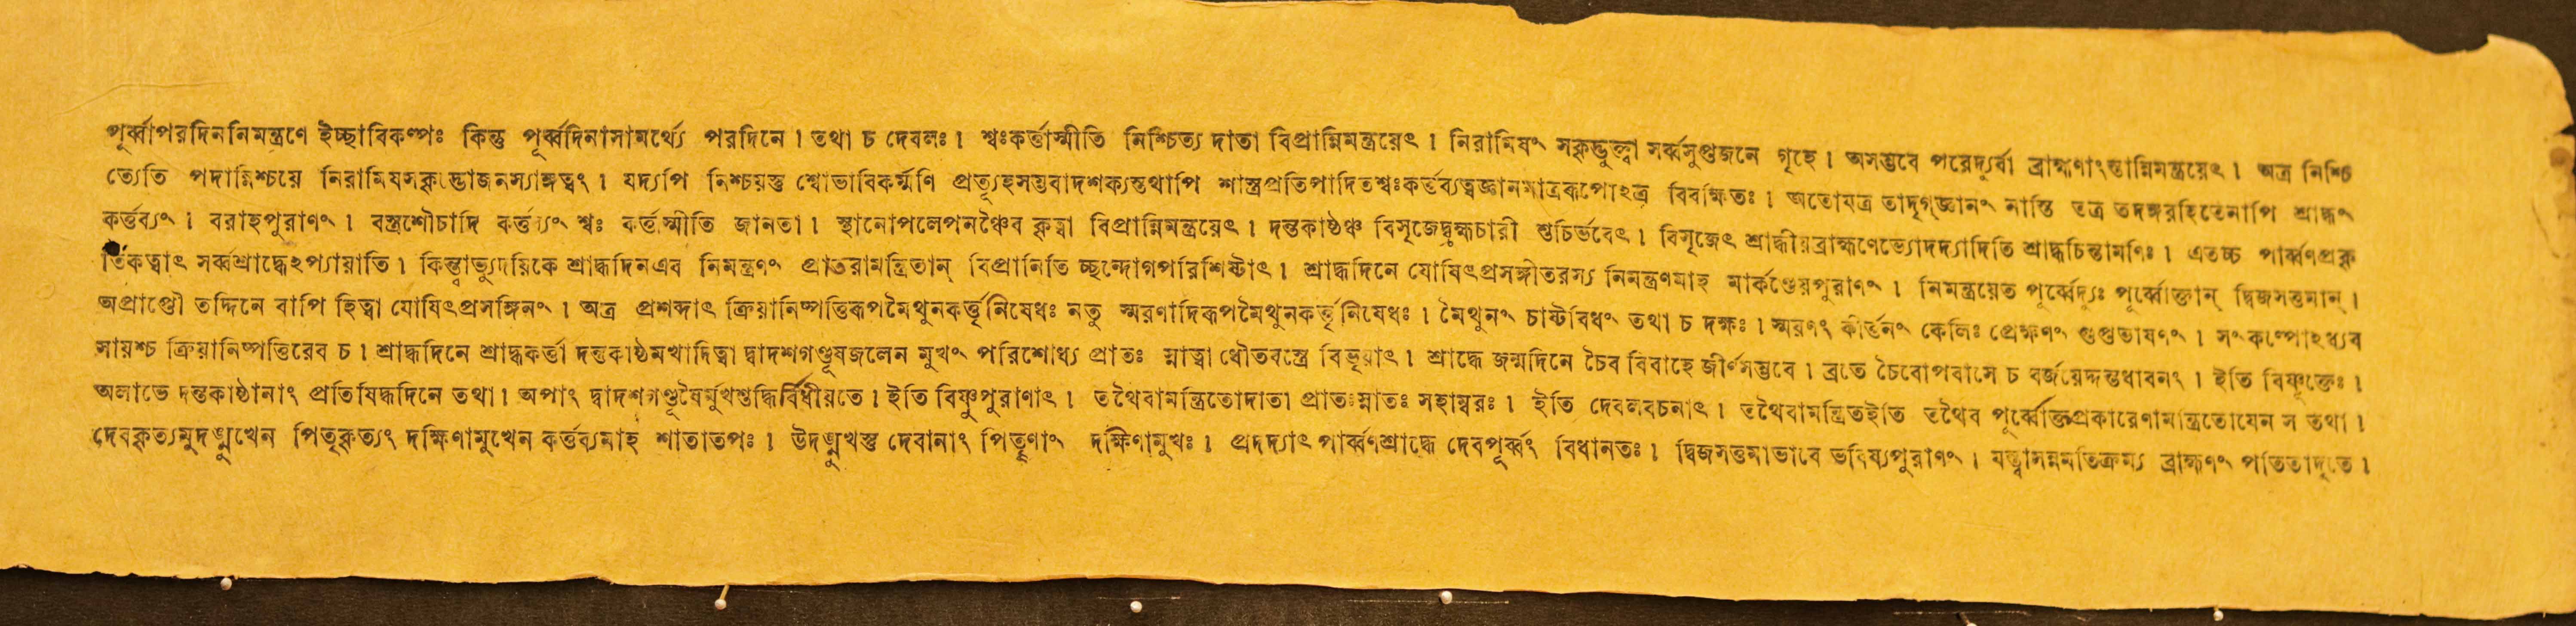 পূর্ব্বাপরদিননিমন্ত্রণে ইচ্ছাবিকল্পঃ কিন্তু পূর্ব্বদিনাসামর্থ্যে পরদিনে। তথা চ দেবলঃ। শ্বঃকর্ত্তাস্মীতি নিশ্চিত্য দাতা বিপ্রান্নিমন্ত্রয়েৎ। নিরামিষং সকৃদ্ভুক্ত্বা সর্ব্বসুপ্তজনে গৃহে। অসম্ভবে পরেদ্যুর্ব্বা ব্রাহ্মণাংস্তান্নিমন্ত্রয়েৎ। অত্র নিশ্চি
ত্যেতি পদান্নিশ্চয়ে নিরামিষসকৃদ্ভোজনস্যাঙ্গত্বং। যদ্যপি নিশ্চয়স্তু শ্বোভাবিকর্ম্মণি প্রত্যূহসম্ভবাদশক্যস্তথাপি শাস্ত্রপ্রতিপাদিতশ্বঃকর্ত্তব্যত্বজ্ঞানমাত্ররূপোঽত্র বিবক্ষিতঃ। অতোযত্র তাদৃগ্জ্ঞানং নাস্তি তত্র তদঙ্গরহিতেনাপি শ্রাদ্ধং
কর্ত্তব্যং। বরাহপুরাণং। বস্ত্রশৌচাদি কর্ত্তব্যং শ্বঃ কর্ত্তাস্মীতি জানতা। স্থানোপলেপনঞ্চৈব কৃত্বা বিপ্রান্নিমন্ত্রয়েৎ। দন্তকাষ্ঠঞ্চ বিসৃজেদ্ব্রহ্মচারী শুচির্ভবেৎ। বিসৃজেৎ শ্রাদ্ধীয়ব্রাহ্মণেভ্যোদদ্যাদিতি শ্রাদ্ধচিন্তামণিঃ। এতচ্চ পার্ব্বণপ্রকৃ
তিকত্বাৎ সর্ব্বশ্রাদ্ধেঽপ্যায়াতি। কিন্ত্বাভ্যুদয়িকে শ্রাদ্ধদিনএব নিমন্ত্রণং প্রাতরামন্ত্রিতান্ বিপ্রানিতি চ্ছন্দোগপরিশিষ্টাৎ। শ্রাদ্ধদিনে যোষিৎপ্রসঙ্গীতরস্য নিমন্ত্রণমাহ মার্কণ্ডেয়পুরাণং। নিমন্ত্রয়েত পূর্ব্বেদ্যুঃ পূর্ব্বোক্তান্ দ্বিজসত্তমান্।
অপ্রাপ্তৌ তদ্দিনে বাপি হিত্বা যোষিৎপ্রসঙ্গিনং। অত্র প্রশব্দাৎ ক্রিয়ানিষ্পত্তিরূপমৈথুনকর্ত্তৃনিষেধঃ নতু স্মরণাদিরূপমৈথুনকর্ত্তৃনিষেধঃ। মৈথুনং চাষ্টবিধং তথা চ দক্ষঃ। স্মরণং কীর্ত্তনং কেলিঃ প্রেক্ষণং গুপ্তভাষণং। সংকল্পোঽধ্যব
সায়শ্চ ক্রিয়ানিষ্পত্তিরেব চ। শ্রাদ্ধদিনে শ্রাদ্ধকর্ত্তা দন্তকাষ্ঠমখাদিত্বা দ্বাদশগণ্ডূষজলেন মুখং পরিশোধ্য প্রাতঃ স্নাত্বা ধৌতবস্ত্রে বিভৃয়াৎ। শ্রাদ্ধে জন্মদিনে চৈব বিবাহে জীর্ণসম্ভবে। ব্রতে চৈবোপবাসে চ বর্জয়েদ্দন্তধাবনং। ইতি বিষ্ণূক্তেঃ।
অলাভে দন্তকাষ্ঠানাং প্রতিষিদ্ধদিনে তথা। অপাং দ্বাদশগণ্ডূষৈর্মুখশুদ্ধির্বিধীয়তে। ইতি বিষ্ণুপুরাণাৎ। তথৈবামন্ত্রিতোদাতা প্রাতঃস্নাতঃ সহাম্বরঃ। ইতি দেবলবচনাৎ। তথৈবামন্ত্রিতইতি তথৈব পূর্ব্বোক্তপ্রকারেণামন্ত্রিতোযেন স তথা।
দেবকৃত্যমুদঙ্মুখেন পিতৃকৃত্যং দক্ষিণামুখেন কর্ত্তব্যমাহ শাতাতপঃ। উদঙ্মুখস্তু দেবানাং পিতৃণাং দক্ষিণামুখঃ। প্রদদ্যাৎ পার্ব্বণশ্রাদ্ধে দেবপূর্ব্বং বিধানতঃ। দ্বিজসত্তমাভাবে ভবিষ্যপুরাণং। যস্ত্বাসন্নমতিক্রম্য ব্রাহ্মণং পতিতাদৃতে।